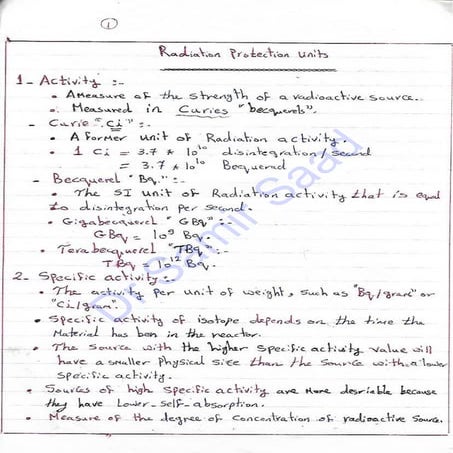 1
Radiation Protection Units
1_ Activity :-
• A measure of the strength of a radioactive source.
• Measured in Curies "becquerels".
- Curie "Ci" :-
• A Former unit of Radiation activity.
• 1 Ci = 3.7 * 10¹⁰ disintegration / second
= 3.7 * 10¹⁰ Becquerad
- Becquerel "Bq." :-
• The SI unit of Radiation activity that is equal
to disintegration per second.
• Gigabecquerel "GBq" :-
GBq = 10⁹ Bq.
• Terabecquerel "TBq" :-
TBq = 10¹² Bq.
2_ Specific activity :-
• The activity per unit of weight, such as "Bq/gram" or
"Ci/gram".
• Specific activity of isotope depends on the time the
Material has ben in the reactor.
• The Source with the higher Specific activity value will
have a smaller Physical size than the Source with a lower
Specific activity.
• Sources of high Specific activity are More desriable because
they have Lower-self-absorption.
• Measure of the degree of Concentration of radioactive Source.
Dr Samir Saad